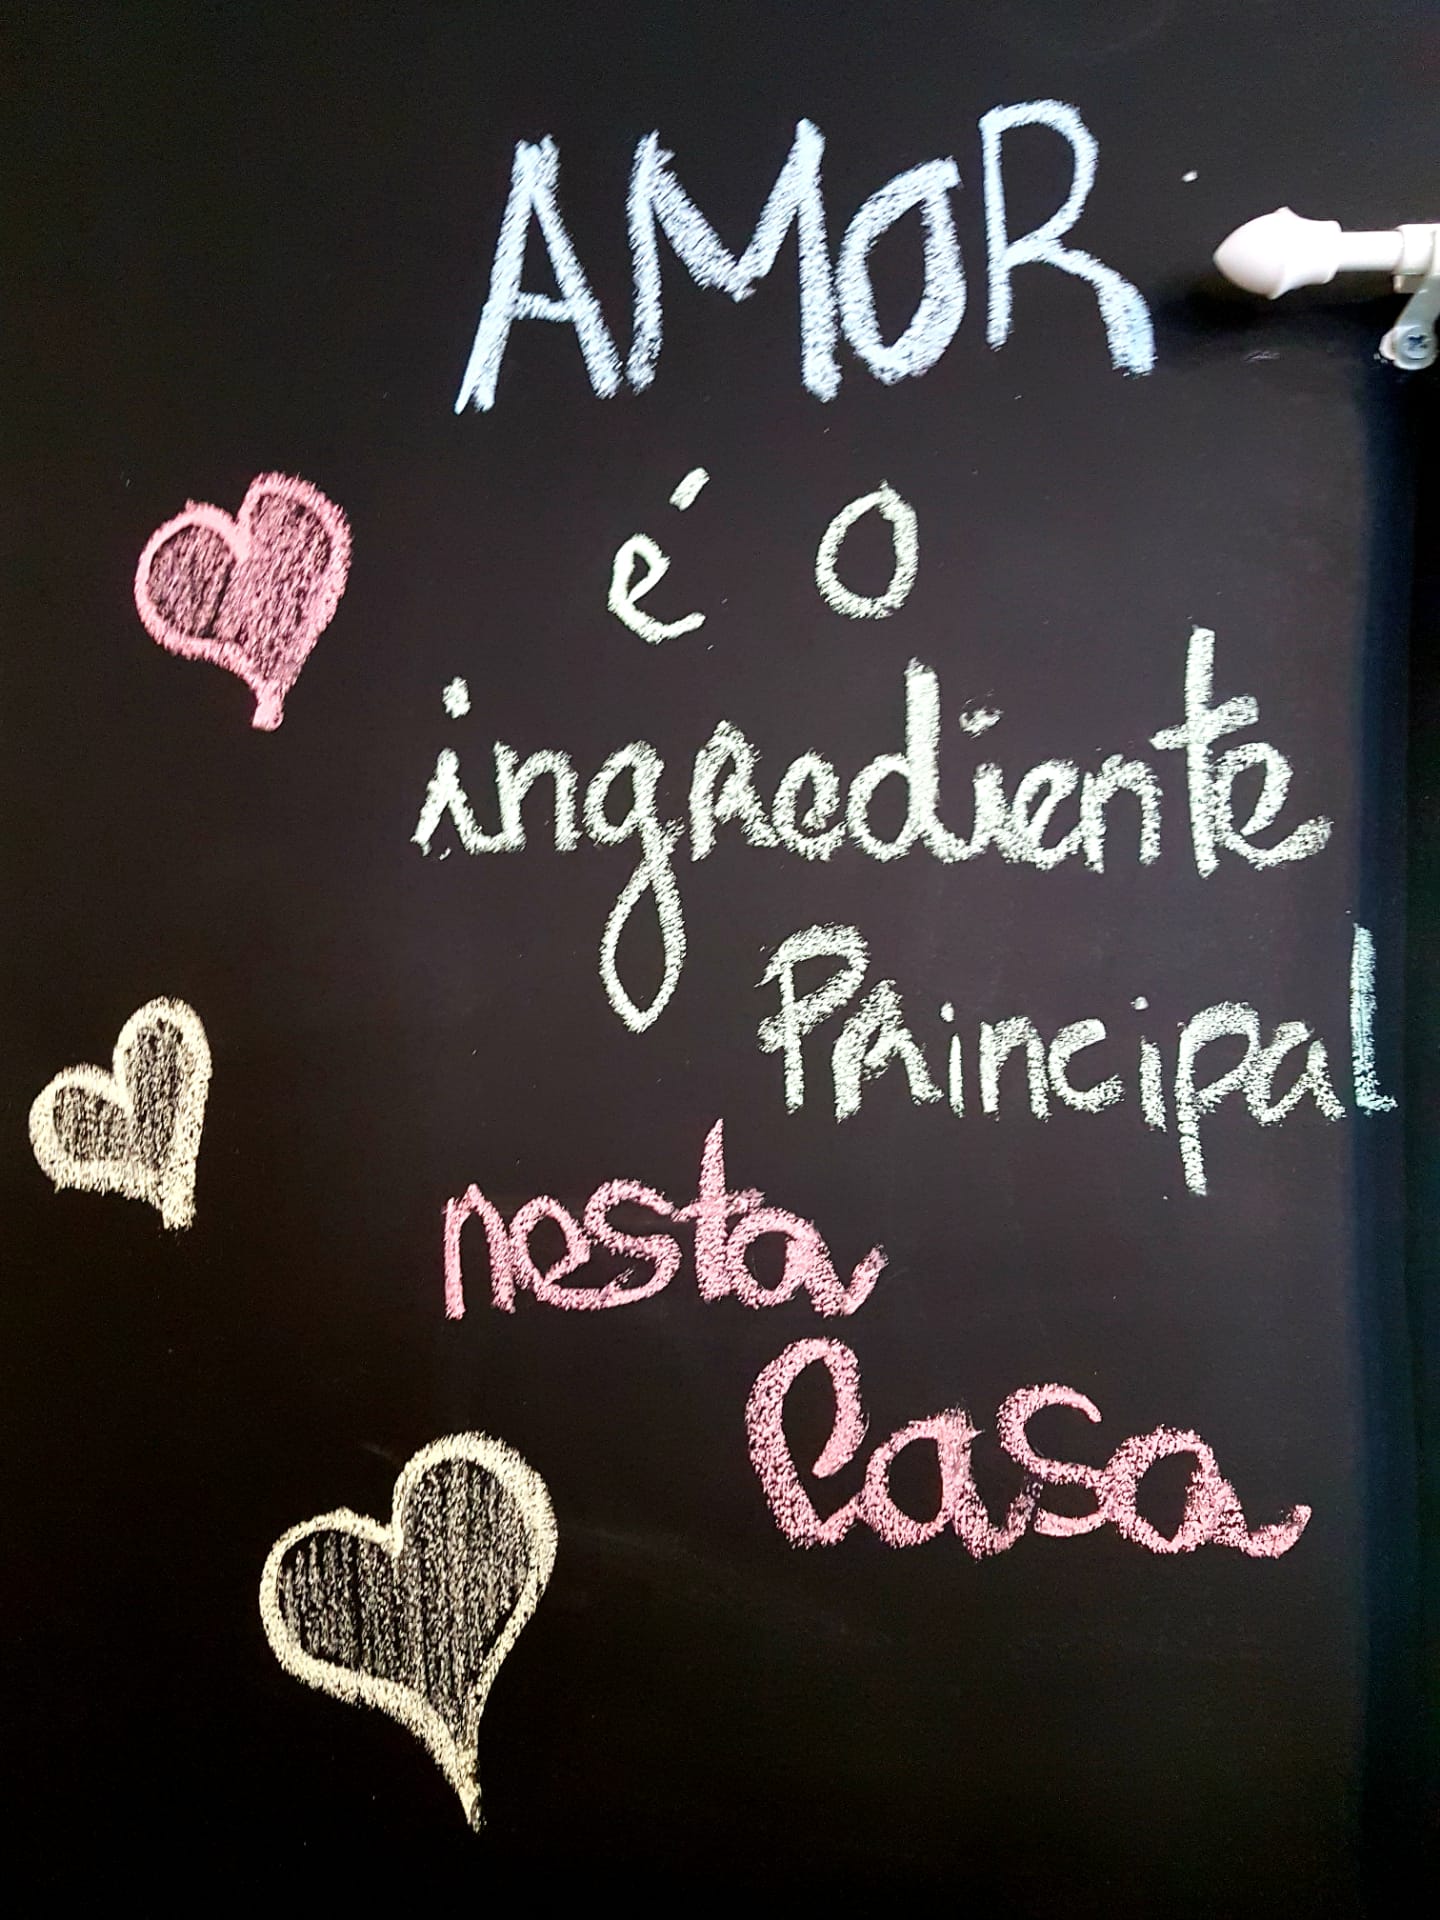 AMOR
é o
ingrediente
Principal
nesta
Casa